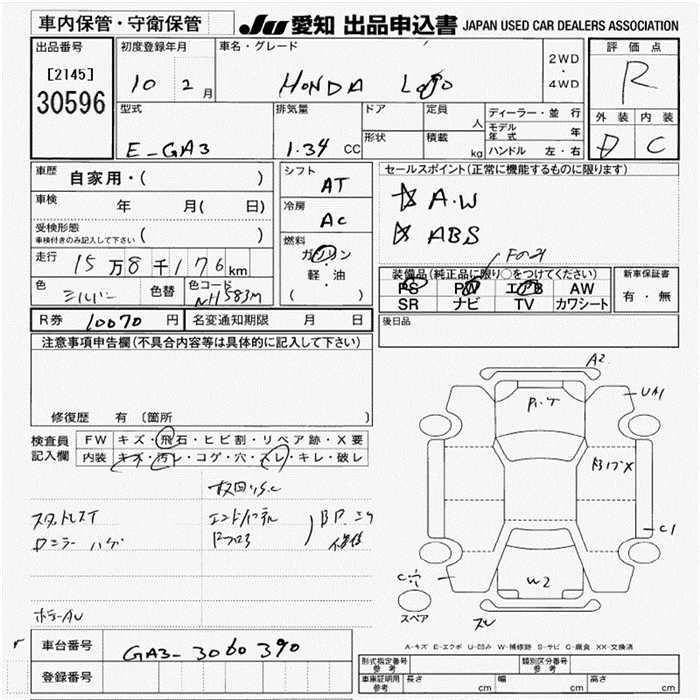 車内保管・守衛保管 JU 愛知 出品申込書 JAPAN USED CAR DEALERS ASSOCIATION
出品番号 初度登録年月 車名・グレード 評価点
[2145] 10 2月 HONDA Logo 2WD・4WD R
30596
型式 排気量 ドア 定員 人 ディーラー・並行 外装 内装
モデル年式 年
E-GA3 1.34 CC 形状 積載 kg ハンドル 左・右 D C
車歴 自家用・( ) シフト AT セールスポイント(正常に機能するものに限ります)
車検 年 月( 日) 冷房 AC ☆ A.W
受検形態 車検付きのみ記入して下さい ( ) ☆ ABS
走行 15万8千176km 燃料 ガソリン・軽・油 ( )
装備品(純正品に限り○をつけてください) 新車保証書
PS PW エアB AW 有・無
SR ナビ TV カワシート
色 シルバー 色替 色コード NH583M
R券 10070 円 名変通知期限 月 日 後日品
注意事項申告欄(不具合内容等は具体的に記入して下さい)
修復歴 有 〔箇所 〕
検査員記入欄 FW キズ・飛石・ヒビ割・リペア跡・X要
内装 キズ・汚レ・コゲ・穴・スレ・キレ・破レ
A2
C1
W2
スペア
A-キズ E-エクボ U-凹み W-補修跡 S-サビ C-腐食 XX-交換済
車台番号 GA3-3060390
登録番号
型式指定番号 参考 類別区分番号 参考
車庫証明用 参考 長さ cm 幅 cm 高さ cm